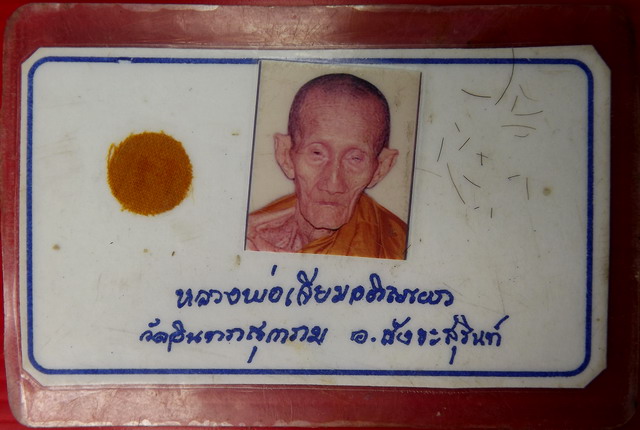 หลวงพ่อเสียมอภิณเยา
วัดอินทราสุการาม อ.สังขะสุรินทร์